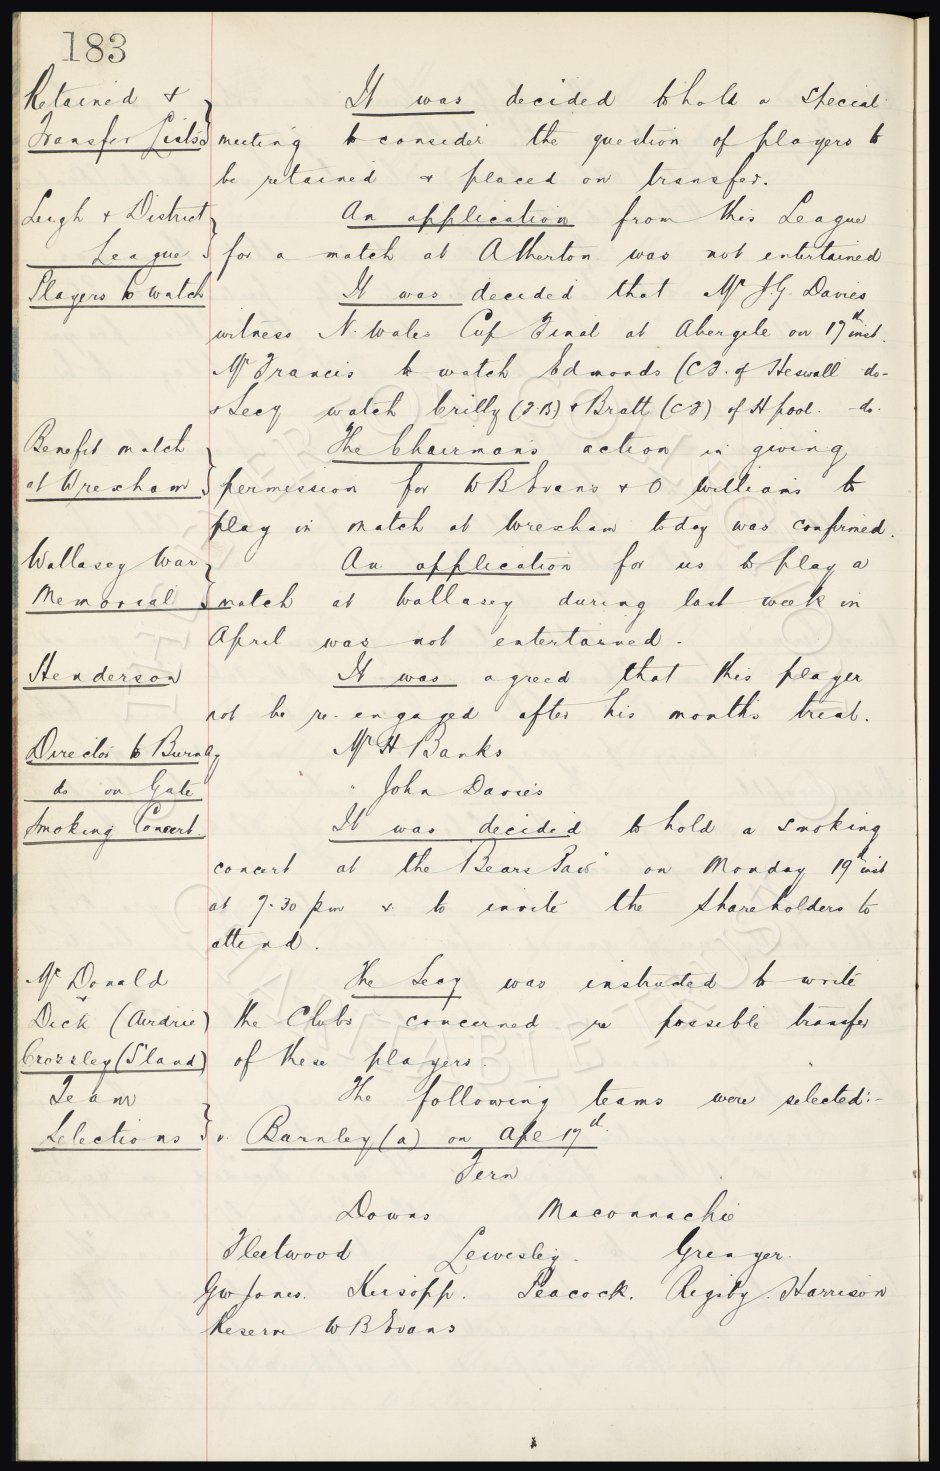 183
Retained & It was decided to hold a special
Transfer Lists meeting to consider the question of players to
be retained & placed on transfer.
Leigh & District An application from this League
League for a match at Atherton was not entertained
Players to watch It was decided that Mr J.G. Davies
witness N. Wales Cup Final at Abergele on 17th inst.
Mr Francis to watch Edmonds (C F. of Heswall do-
& Secy watch Crilly (F B) & Bratt (C F) of H pool. -do.
Benefit match The Chairman's action in giving
at Wrexham permission for W B Evans & O Williams to
play in match at Wrexham today was confirmed.
Wallasey War An application for us to play a
Memorial match at Wallasey during last week in
April was not entertained.
Henderson It was agreed that this player
not be re-engaged after his month's trial.
Director to Burnley Mr H Banks
do on Gate " John Davies
Smoking Concert It was decided to hold a smoking
concert at the Bears Paw" on Monday 19th inst
at 7.30 pm & to invite the shareholders to
attend.
Mc Donald The Secy was instructed to write
Dick (Airdrie) the Clubs concerned re possible transfer
Crossley (Sland) of these players.
Team The following teams were selected:-
Selections v. Barnley (a) on Ape 17th.
Fern
Downs Maconnachie
Fleetwood Lewesley. Grenyer.
GW Jones. Kirsopp. Peacock. Rigsby. Harrison
Reserve W B Evans